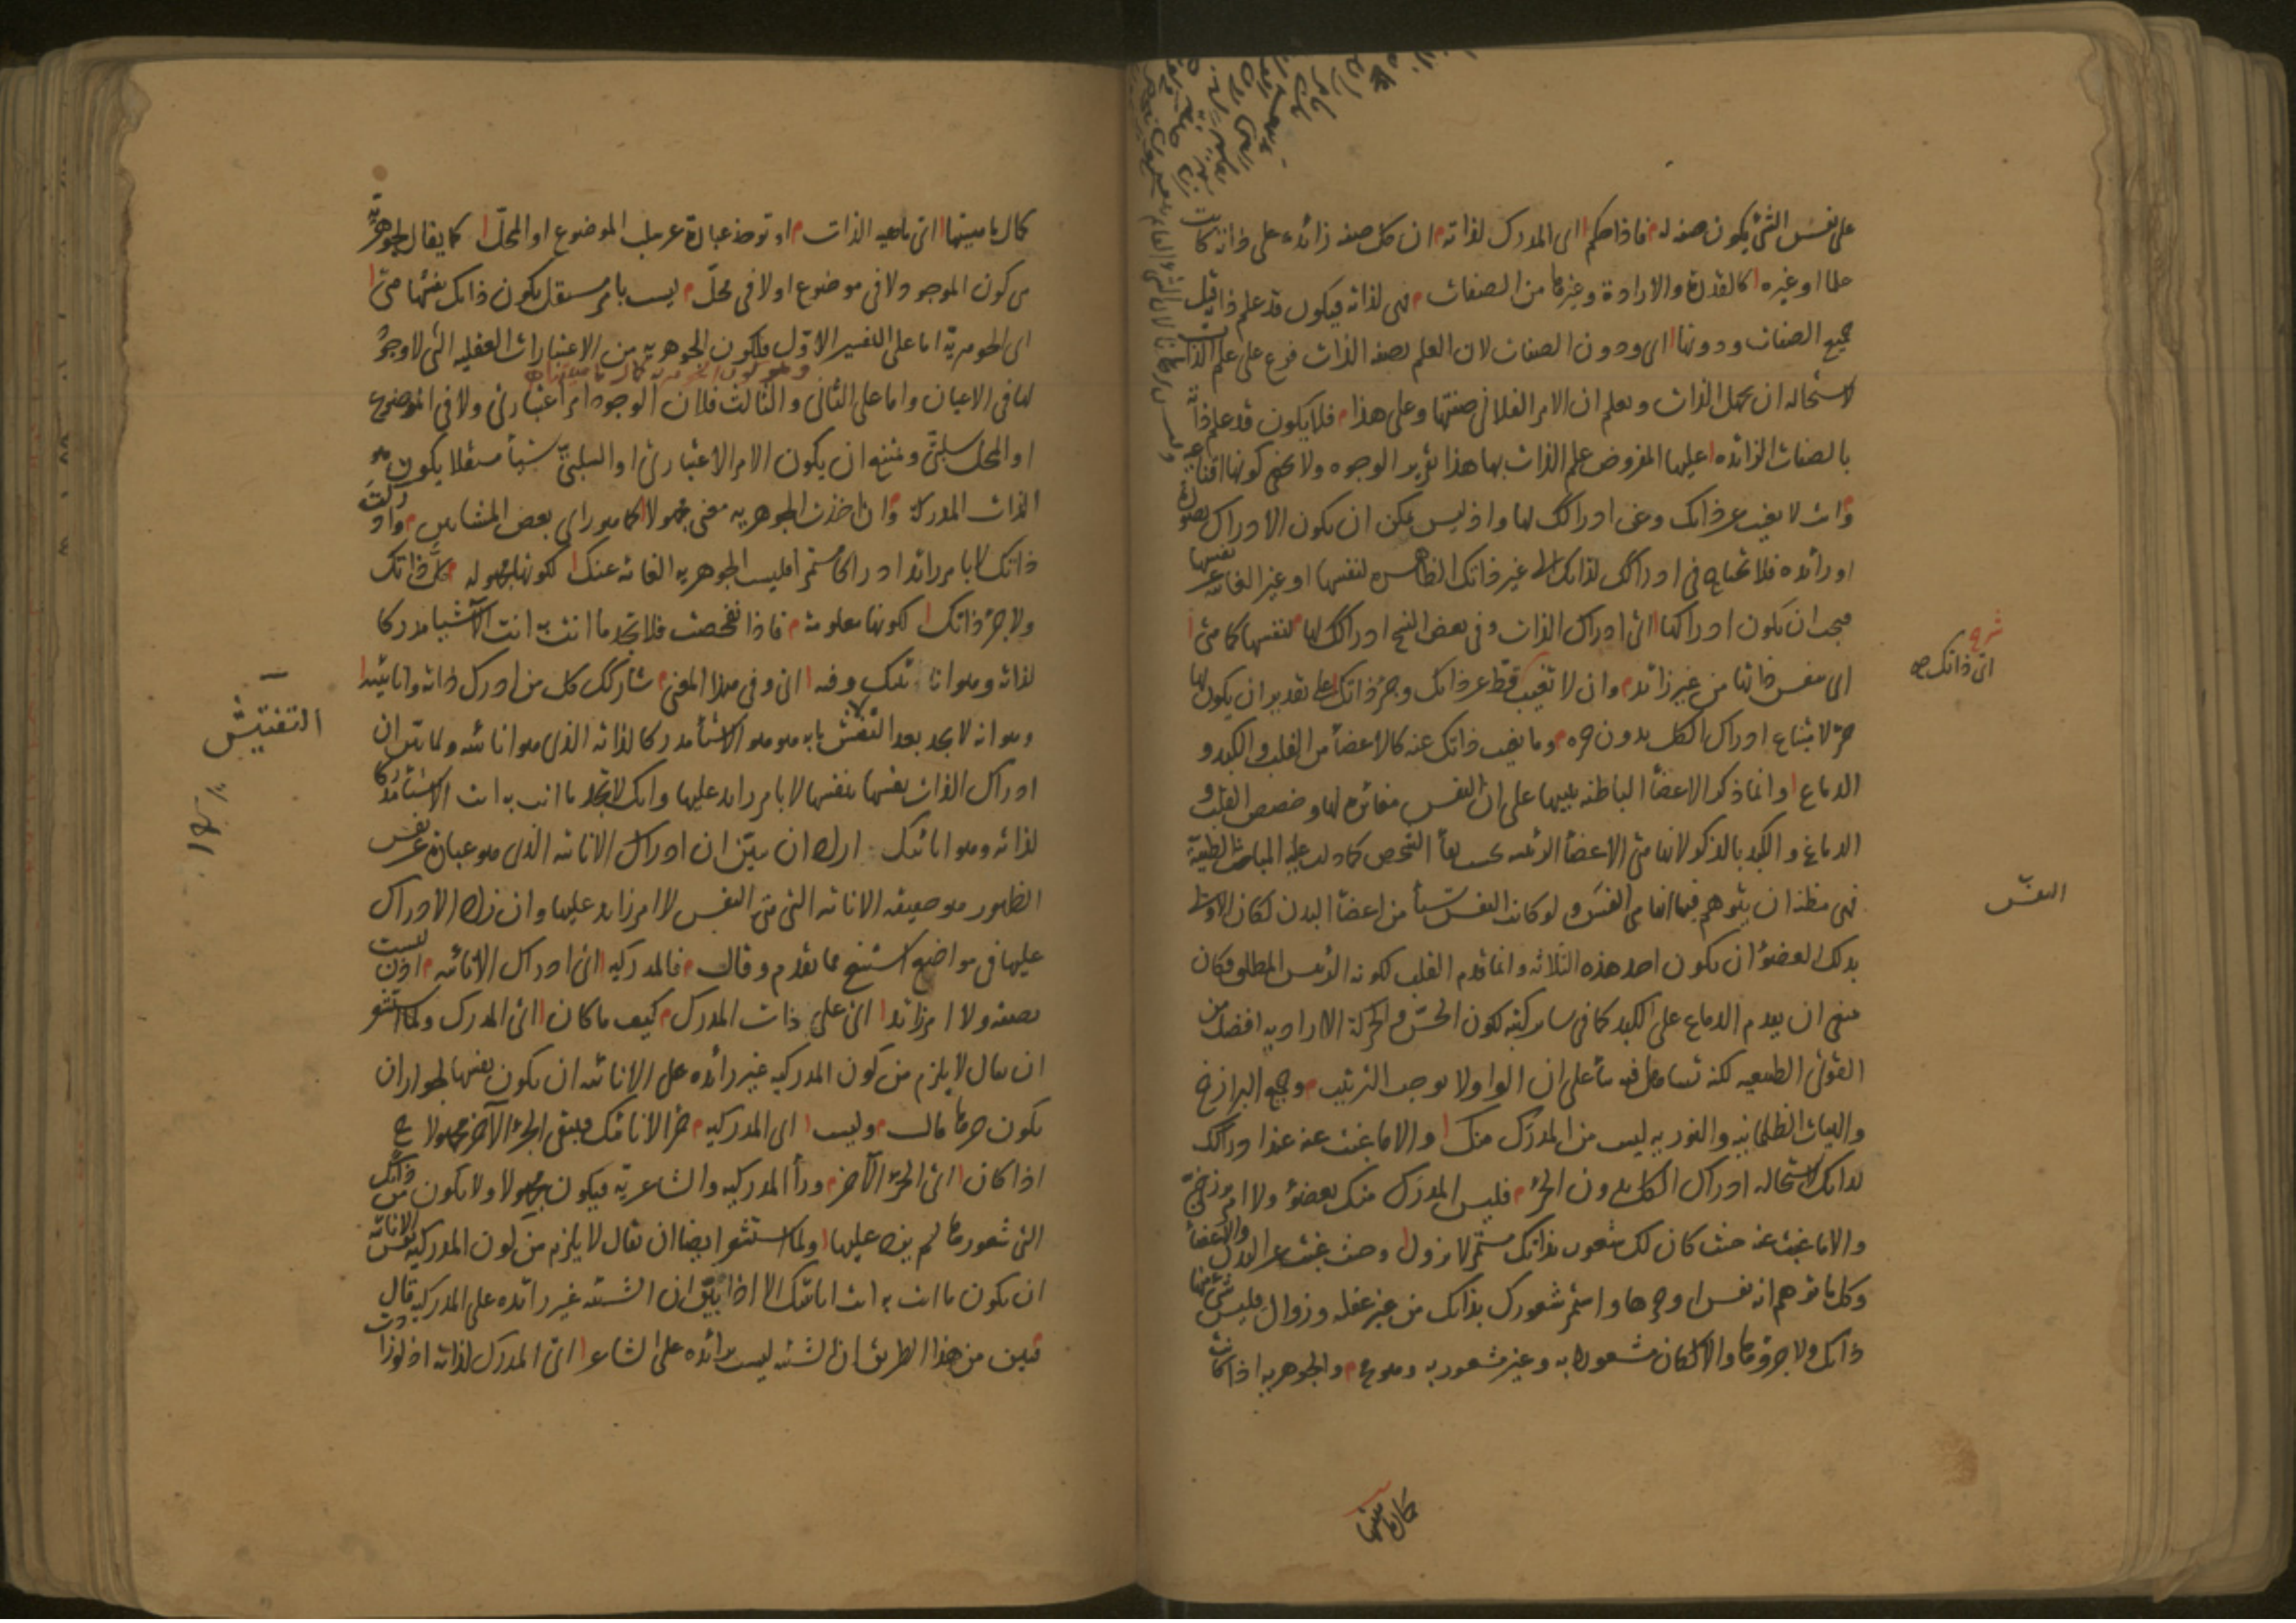 على نفس الشئ يكون صفة له فاذا حكم اى المدرك لذاته ان كل صفة زائدة على ذاته كانت
علما او غيره كالقدرة والارادة وغيرها من الصفات فهى لذاته فيكون قد علم ذاته قبل
جميع الصفات ودونها اى ودون الصفات لان العلم بصفة الذات فرع على علم الذات
لاستحالة ان يجهل الذات ويعلم ان الامر الفلانى صفتها وعلى هذا فلا يكون قد علم ذاته
بالصفات الزائدة عليها المفروض علم الذات بها هذا تقرير الوجوه ولا يخفى كونها اقناعية
وانت لا تغيب عن ذاتك وعن ادراكك لها واذ ليس يمكن ان يكون الادراك بصورة
او زائدة فلا تحتاج فى ادراكك لذاتك الى غير ذاتك الظاهرة لنفسها او غير الغائبة عن نفسها
فيجب ان يكون ادراكها اى ادراك الذات وفى بعض النسخ ادراكك لها لنفسها كما هى
اى بنفس ذاتها من غير زائد وان لا تغيب قط عن ذاتك وجزء ذاتك على تقدير ان يكون لها
جزء لامتناع ادراك الكل بدون جزءه وما يغيب ذاتك عنه كالاعضاء من القلب والكبد و
الدماغ وانما ذكر الاعضاء الباطنة تنبيها على ان النفس مغائرة لها وخصص القلب و
الدماغ والكبد بالذكر لانها هى الاعضاء الرئيسة بحسب بقاء الشخص كما دلت عليه المباحث الطبية
فهى مظنة ان يتوهم فيها انها هى النفس ولو كانت النفس شيئا من اعضاء البدن لكان الاولى
بذلك العضو ان يكون احد هذه الثلاثة وانما قدم القلب لكونه الرئيس المطلق وكان
ينبغى ان يقدم الدماغ على الكبد كما فى ساير كتبه لكون الحس والحركة الارادية افضل من
القوى الطبيعية لكنه تساهل فيه بناء على ان الواو لا توجب الترتيب وجميع البرازخ
والهيئات الظلمانية والنورية ليس من المدرك منك والا ما غبت عنه عند ادراكك
لذاتك لاستحالة ادراك الكل بدون الجزء فليس المدرك منك بعضو ولا امر برزخى
والا ما غبت عنه حيث كان لك شعور بذاتك مستمر لا يزول وحيث غبت عن البدن والاعضاء
وكل ما توهم انه نفس او جزءها واستمر شعورك بذاتك من غير غفلة وزوال فليس شئ منها
ذاتك ولا جزءها والا لكان مشعورا به وغير مشعور به وهو مح والجوهرية اذا كانت
شرح
اى ذاتك صح
النفس
كمال ماهيتها
كمال ماهيتها اى ماهية الذات او توخذ عبارة عن سلب الموضوع او المحل كما يقال الجوهرية
هى كون الموجود لا فى موضوع او لا فى محل ليست بامر مستقل يكون ذاتك نفسها هى
اى الجوهرية اما على التفسير الاول فلكون الجوهرية من الاعتبارات العقلية التى لا وجود
وهو كون الجوهرية كمال ماهيتها صح
لها فى الاعيان واما على الثانى والثالث فلان الوجود امر اعتبارى ولا فى الموضوع
او المحل سلبى ويمتنع ان يكون الامر الاعتبارى او السلبى شيئا مستقلا يكون هو
الذات المدركة وان اخذت الجوهرية معنى مجهولا كما هو راى بعض المشائين وادركت
ذاتك لا بامر زائد ادراكا مستمرا فليست الجوهرية الغائبة عنك لكونها مجهولة كل ذاتك
ولا جزء ذاتك لكونها معلومة فاذا تفحصت فلا تجد ما انت به انت الا شيئا مدركا
لذاته وهو انائيتك وفيه اى وفى هذا المعنى شاركك كل من ادرك ذاته وانائيته
وهو انه لا يجد بعد التفتيش ما به هو هو الا شيئا مدركا لذاته الذى هو انائيته ولما بين ان
ادراك الذات نفسها بنفسها لا بامر زائد عليها وانك لا تجد ما انت به انت الا شيئا مدركا
لذاته وهو انائيتك اراد ان يبين ان ادراك الانائية الذى هو عبارة عن نفس
الظهور هو حقيقة الانائية التى هى النفس لا امر زائد عليها وان زاد الادراك
عليها فى مواضع استنتج مما تقدم وقال فالمدركية اى ادراك الانائية اذن ليست
بصفة ولا امر زائد اى على ذات المدرك كيف ما كان اى المدرك ولما استشعر
ان يقال لا يلزم من كون المدركية غير زائدة على الانائية ان يكون نفسها لجواز ان
يكون جزءها قال وليست اى المدركية جزء الانائيتك فيبقى الجزء الآخر مجهولا ح
اذا كان اى الجزء الآخر وراء المدركية والشاعرية فيكون مجهولا ولا يكون من ذاتك
التى شعورها لم يزد عليها ولما استشعر ايضا ان يقال لا يلزم من كون المدركية نفس الانائية
ان يكون ما انت به انت انائيتك الا اذا بين ان الشيئية غير زائدة على المدركية قال
فتبين من هذا الطريق ان الشيئية ليست بزائدة على الشاعر اى المدرك لذاته اذ لو زادت
التفتيش